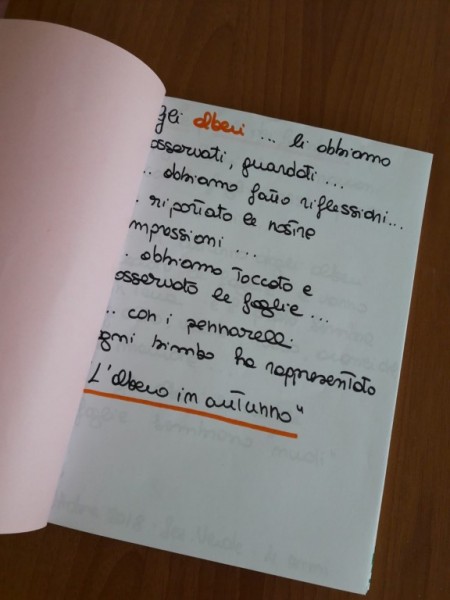 gli alberi .... li abbiamo
osservati, guardati ...
... abbiamo fatto riflessioni...
.. riportato le nostre
impressioni ...
.. abbiamo toccato e
osservato le foglie ...
... con i pennarelli
ogni bimbo ha rappresentato
L'albero in autunno"